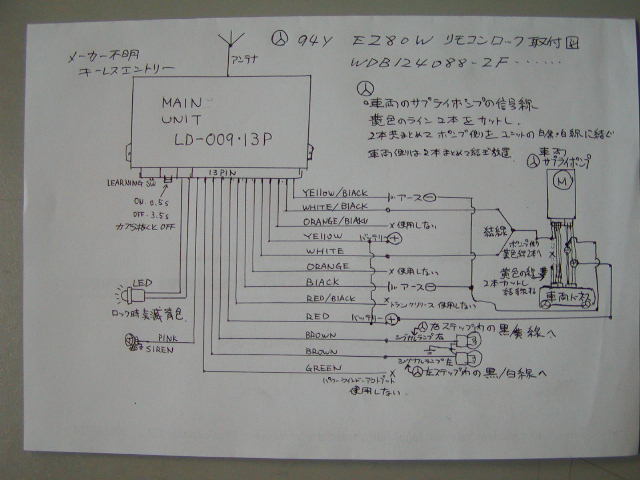 94Y E280W リモコンロック取付図
WDB124088-2F······
メーカー不明
キーレスエントリー
アンテナ
MAIN
UNIT
LD-009·13P
13PIN
車両のサプライポンプの信号線
黄色のライン2本をカットし、
2本共まとめてポンプ側をユニットの白/黒・白線に結ぶ
車両側は2本まとめて結ぶ放置.
車両
サプライポンプ
M
LEARNING SW
ON 0.5s
OFF 3.5s
カプラ抜くとOFF
YELLOW/BLACK
アース⊖
WHITE/BLACK
ORANGE/BLACK
×使用しない
YELLOW
バッテリー⊕
WHITE
結線
ポンプ側
黄色線2本へ
ORANGE
×使用しない
BLACK
アース⊖
黄色の線
2本カットし
RED/BLACK
×トランクリリース 使用しない
車両ハーネス
RED
バッテリー⊕
LED
ロック時点滅
BROWN
シグナルランプ右
右ステップ内の黒/
線へ
PINK
SIREN
BROWN
シグナルランプ左
左ステップ内の黒/白線へ
GREEN
×
パワーウインドーアウトプット
使用しない.